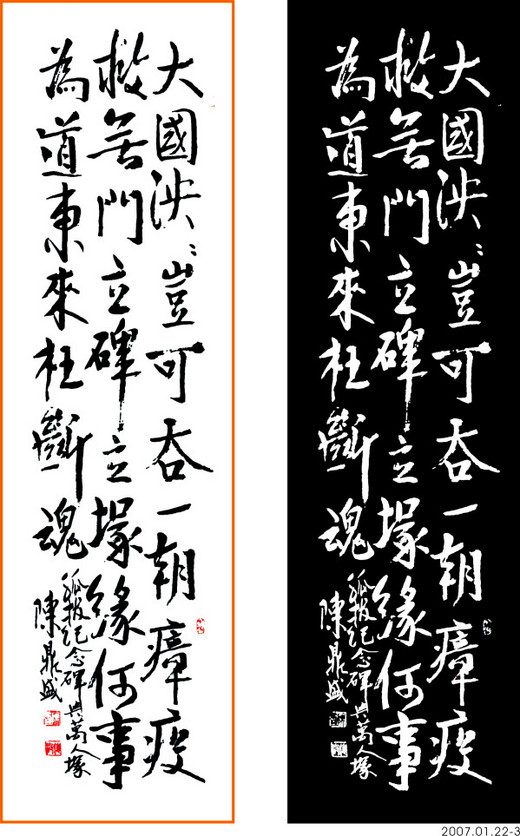 大國泱〻豈可吞一朝瘴疫
救無門立碑立塚緣何事
為道東來枉斷魂
孤拔紀念碑與萬人塚
陳鼎盛
大國泱〻豈可吞一朝瘴疫
救無門立碑立塚緣何事
為道東來枉斷魂
孤拔紀念碑與萬人塚
陳鼎盛
2007.01.22-3